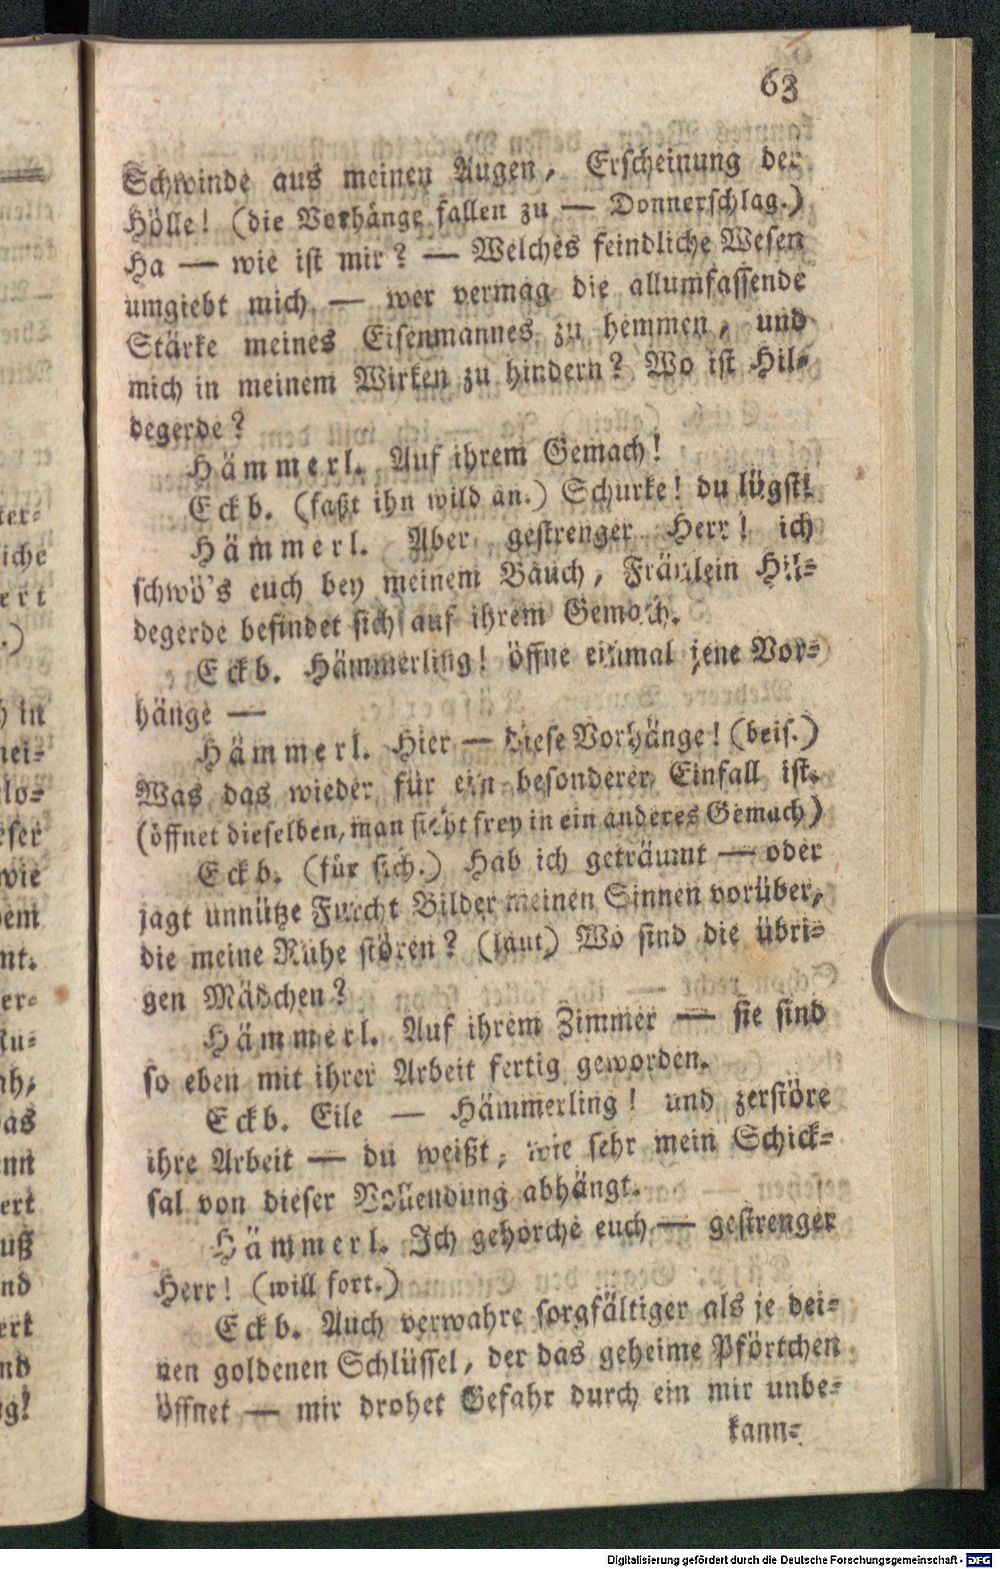 63
Schwinde aus meinen Augen, Erscheinung der
Hölle! (die Vorhänge fallen zu — Donnerschlag.)
Ha — wie ist mir? — Welches feindliche Wesen
umgiebt mich — wer vermag die allumfassende
Stärke meines Eisenmannes zu hemmen, und
mich in meinem Wirken zu hindern? Wo ist Hil-
degerde?
Hämmerl. Auf ihrem Gemach!
Eckb. (faßt ihn wild an.) Schurke! du lügst!
Hämmerl. Aber gestrenger Herr! ich
schwö's euch bey meinem Bauch, Fräulein Hil-
degerde befindet sich auf ihrem Gemach.
Eckb. Hämmerling! öffne einmal jene Vor-
hänge —
Hämmerl. Hier — diese Vorhänge! (beis.)
Was das wieder für ein besonderer Einfall ist.
(öffnet dieselben, man sieht frey in ein anderes Gemach)
Eckb. (für sich.) Hab ich geträumt — oder
jagt unnütze Furcht Bilder meinen Sinnen vorüber,
die meine Ruhe stören? (laut) Wo sind die übri-
gen Mädchen?
Hämmerl. Auf ihrem Zimmer — sie sind
so eben mit ihrer Arbeit fertig geworden.
Eckb. Eile — Hämmerling! und zerstöre
ihre Arbeit — du weißt, wie sehr mein Schick-
sal von dieser Vollendung abhängt.
Hämmerl. Ich gehorche euch — gestrenger
Herr! (will fort.)
Eckb. Auch verwahre sorgfältiger als je dei-
nen goldenen Schlüssel, der das geheime Pförtchen
öffnet — mir drohet Gefahr durch ein mir unbe-
kann-
Digitalisierung gefördert durch die Deutsche Forschungsgemeinschaft - DFG